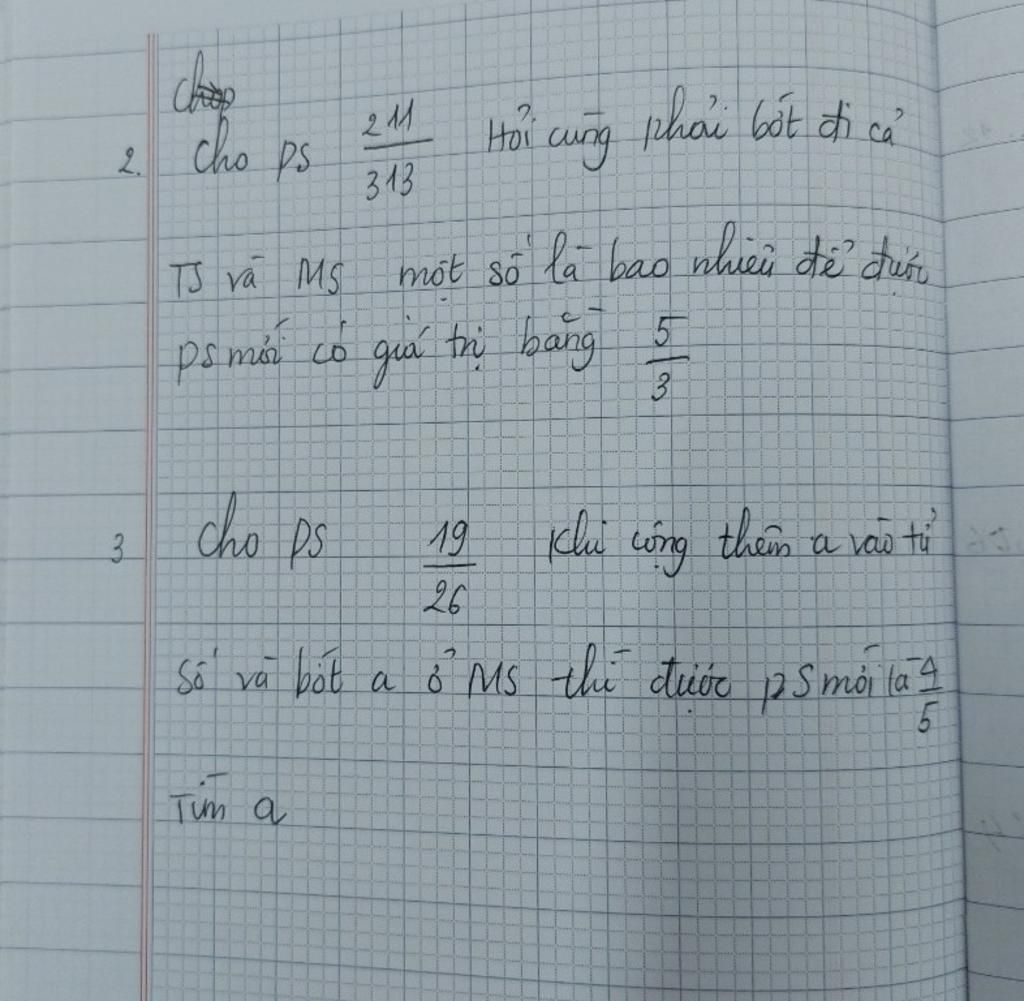 2. Cho PS 211/313 Hỏi cùng phải bớt đi cả
TS và MS một số là bao nhiêu để được
PS mới có giá trị bằng 5/3
3 Cho PS 19/26 Khi cộng thêm a vào tử
số và bớt a ở MS thì được PS mới là 4/5
Tìm a